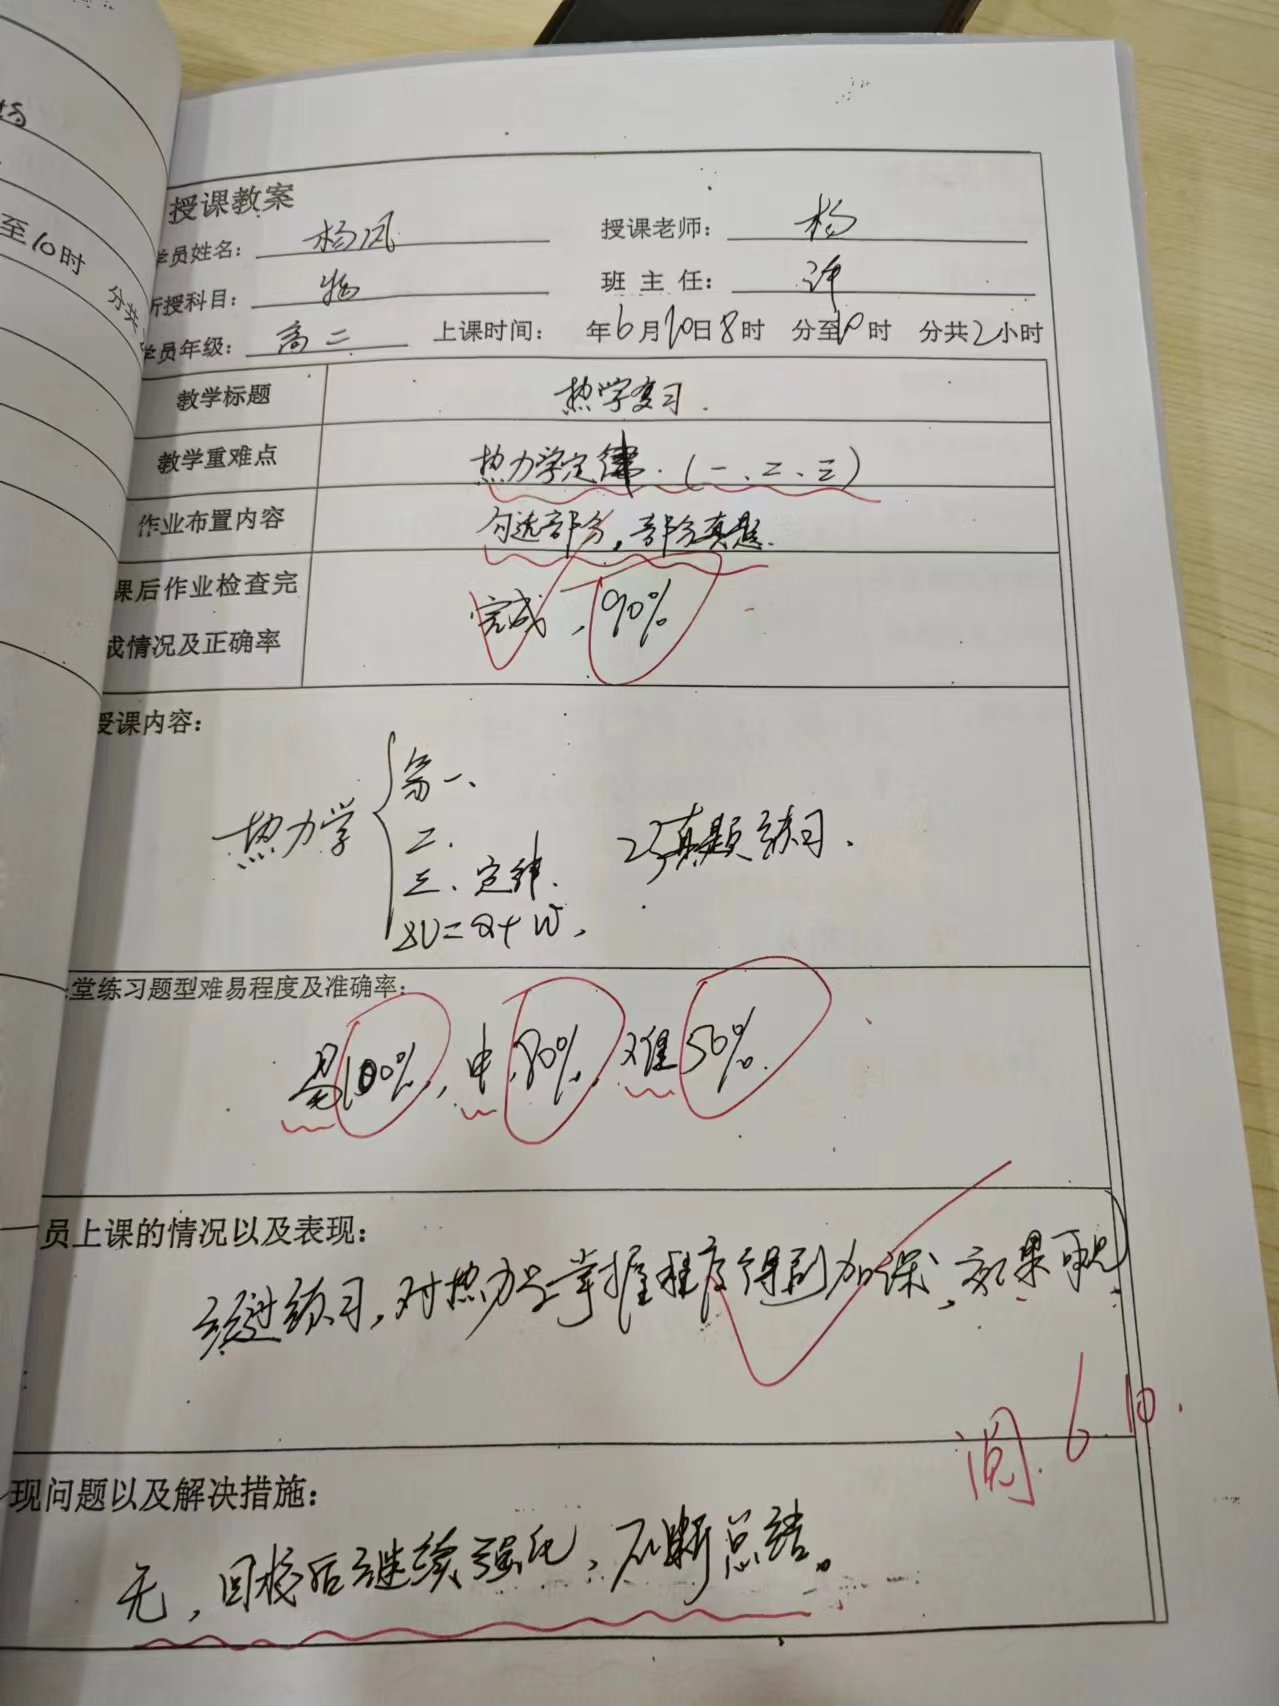 杨
至10时 分共
授课教案
学员姓名：杨凤 授课老师：杨
所授科目：物 班 主 任：许
学员年级：高二 上课时间： 年6月10日8时 分至10时 分共2小时
教学标题 热学复习.
教学重难点 热力学定律.(一、二、三)
作业布置内容 勾选部分，部分真题.
课后作业检查完
成情况及正确率 完成，90%
授课内容：
第一、
热力学 二. 真题练习.
三、定律.
ΔU=Q+W,
堂练习题型难易程度及准确率：
易100%，中80%，难50%.
员上课的情况以及表现：
经过练习，对热力学掌握程度得到加深，效果可见
阅 6.10.
现问题以及解决措施：
无，回校后继续强化，不断总结。